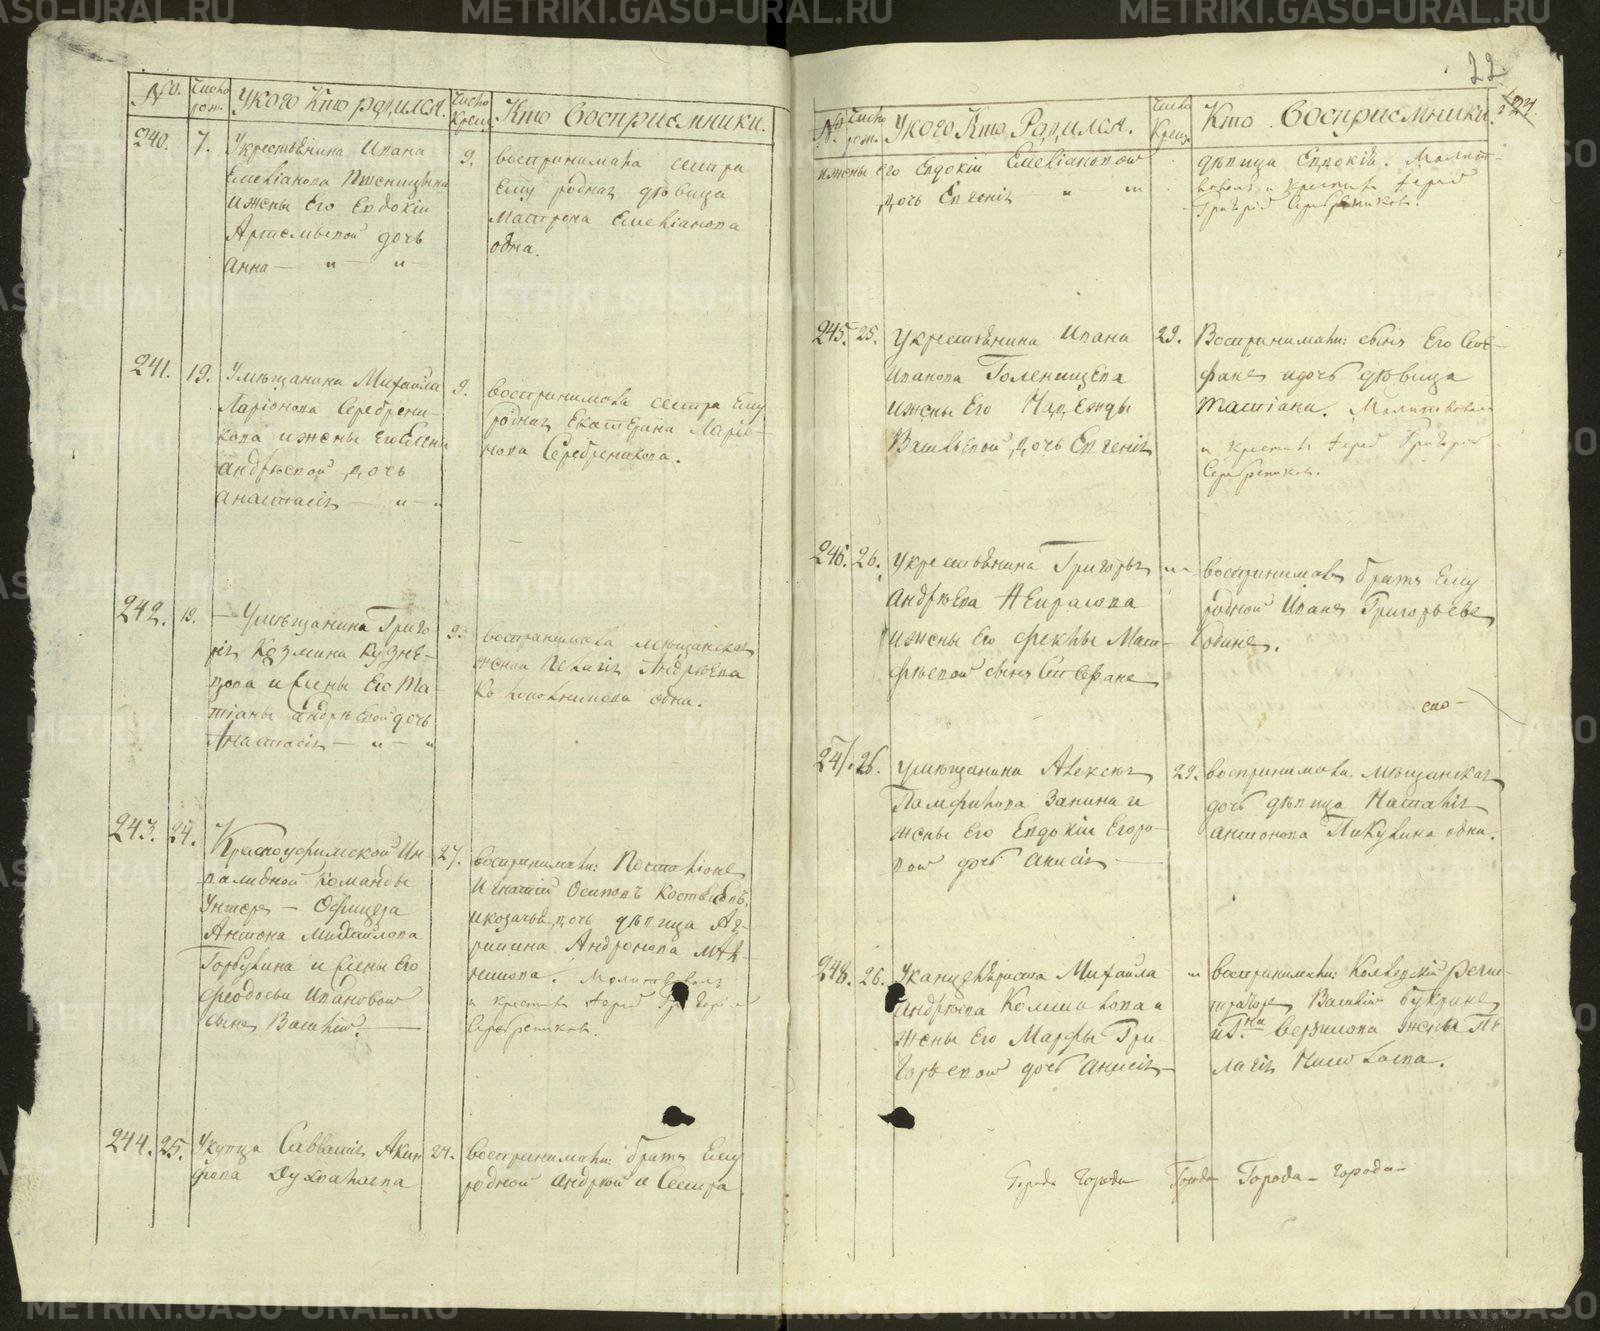 №. Число рож. У кого Кто родился. Число Крещ. Кто восприемники.
240. 7. У крестьянина Ивана
Емелианова Пшеницына
и жены Его Евдокіи
Артемьевой дочь
Анна — " — " —
9. воспринимала сестра
Ему родная дѣвица
Матрона Емеліанова
одна.
241. 19. У мѣщанина Михаила
Ларіонова Серебрени-
кова и жены его Елены
Андрѣевой дочь
Анастасія — " — "
9. воспринимала сестра Ему
родная Екатерина Ларіо-
нова Серебреникова.
242. 19. — У мѣщанина Григо
рія Козмина Кузне-
цова и жены Его Та-
тіаны Андрѣевой дочь
Анастасія — " — "
воспринимала мѣщанская
женка Пелагія Андрѣева
одна.
243. 24. Красноуфимской Ин
валидной Команды
Унтеръ — Офицера
Антона Михайлова
Горбунина и жены Его
Феодосьи Ивановой
сынъ Василій. —
27. воспринимали:
Игнатій Осиповъ
и козачья дочь дѣвица Аг-
рипина Андронова
Молитвовалъ
и крестилъ Іерей Григорій
Серебренниковъ.
244. 25. У купца Савватія Акин
фова
27. воспринимали: братъ Ему
родной Андрей и Сестра
22
№ Число рож. У кого Кто Родился. Число Крещ. Кто Восприемники.
и жены его Евдокіи Емеліановой
дочь Евгенія " — "
дѣвица Евдокія. Молит-
вовалъ и крестилъ Іерей
Григорій Серебренниковъ.
245. 25. У крестьянина Ивана
Иванова Голенищева
и жены Его Надежды
Васильевой дочь Евгенія
29. Воспринимали: сынъ Его Сте-
фанъ и дочь дѣвица
Татіана. Молитвовалъ
и крестилъ Іерей Григорій
Серебренниковъ.
246. 26. У крестьянина Григорья
Андрѣева
и жены Его Феклы Мат-
фѣевой сынъ Стефанъ
" воспринималъ братъ Ему
родной Иванъ Григорьевъ
Единъ.
247. 26. У мѣщанина Алексѣя
Памфилова Занина и
жены Его Евдокіи Егоро-
вой дочь Анисія —
29. воспринимала мѣщанская
дочь дѣвица Наталія
Антонова Пикулина одна.
248. 26. У канцеляриста Михаила
Андрѣева и
жены Его Марфы Гри-
горьевой дочь Анисія —
" воспринимали: Коллежскій Реги-
страторъ Василій
жена Пе
лагія
Города Города Города Города — города —